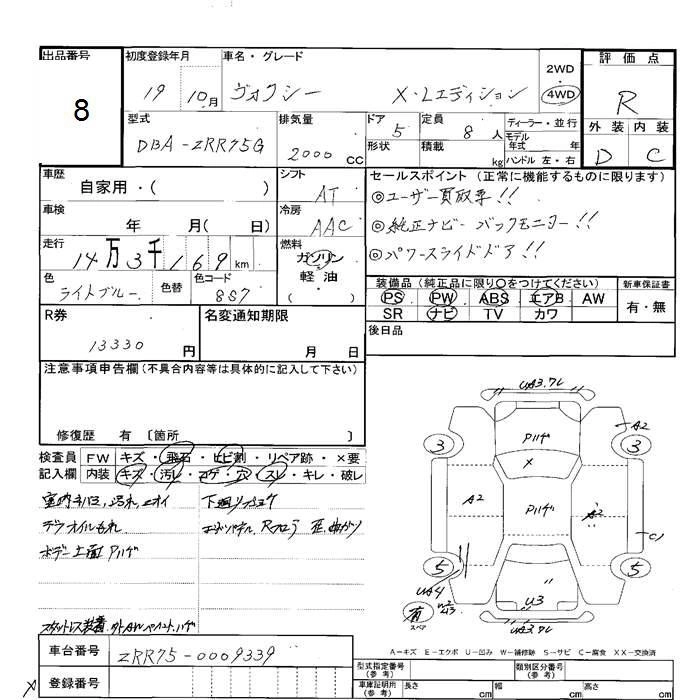 出品番号
8
初度登録年月
19 10月
車名・グレード
ヴォクシー X・Lエディション
2WD
4WD
評価点
R
外装 内装
D C
型式
DBA-ZRR75G
排気量
2000 CC
ドア 5
形状
定員 8人
積載 kg
ディーラー・並行
モデル
年式 年
ハンドル 左・右
車歴
自家用・( )
シフト
AT
車検
年 月( 日)
冷房
AAC
走行
14万3千169km
燃料
ガソリン
軽油
( )
色
ライトブルー
色替
色コード
8S7
セールスポイント(正常に機能するものに限ります)
◎ユーザー買取車!!
◎純正ナビ バックモニター!!
◎パワースライドドア!!
装備品(純正品に限り○をつけてください)
PS PW ABS エアB AW
SR ナビ TV カワ
新車保証書
有・無
後日品
R券
13330 円
名変通知期限
月 日
注意事項申告欄(不具合内容等は具体的に記入して下さい)
修復歴 有 〔箇所 〕
検査員 FW キズ・飛石・ヒビ割・リペア跡・×要
記入欄 内装 キズ・汚レ・コゲ・穴・スレ・キレ・破レ
室内キズ,汚れ,ニオイ
下廻り
オイルもれ
Rフロア 歪,曲がり
ボデー上面 Pハゲ
車台番号 ZRR75-0009339
登録番号
UA3.フレ
A2
3
3
Pハゲ
X
A2
Pハゲ
A2
C1
5
5
UA4
有
スペア
U3
UA3.フレ
A－キズ E－エクボ U－凹み W－補修跡 S－サビ C－腐食 XX－交換済
型式指定番号
(参考)
類別区分番号
(参考)
車庫証明用
(参考)
長さ cm
幅 cm
高さ cm